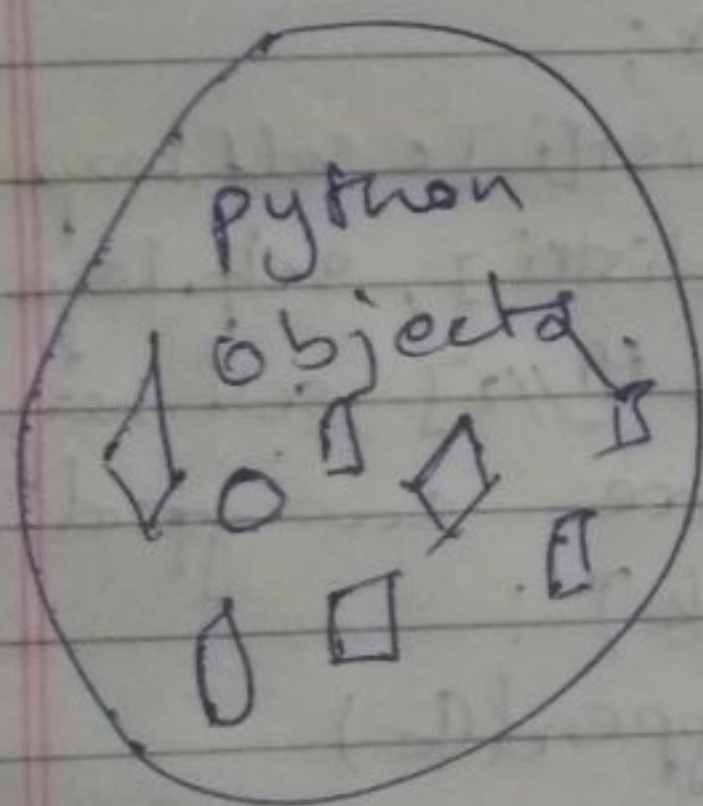 python
objects